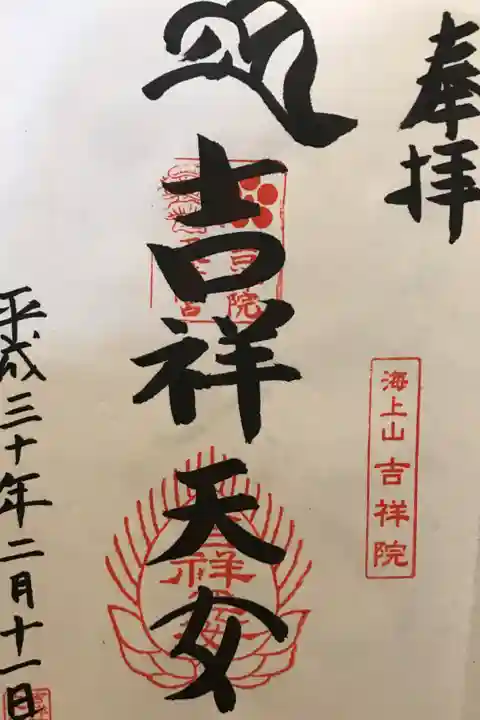 奉拝
海上山 吉祥院
吉祥天女
平成三十年二月十一日